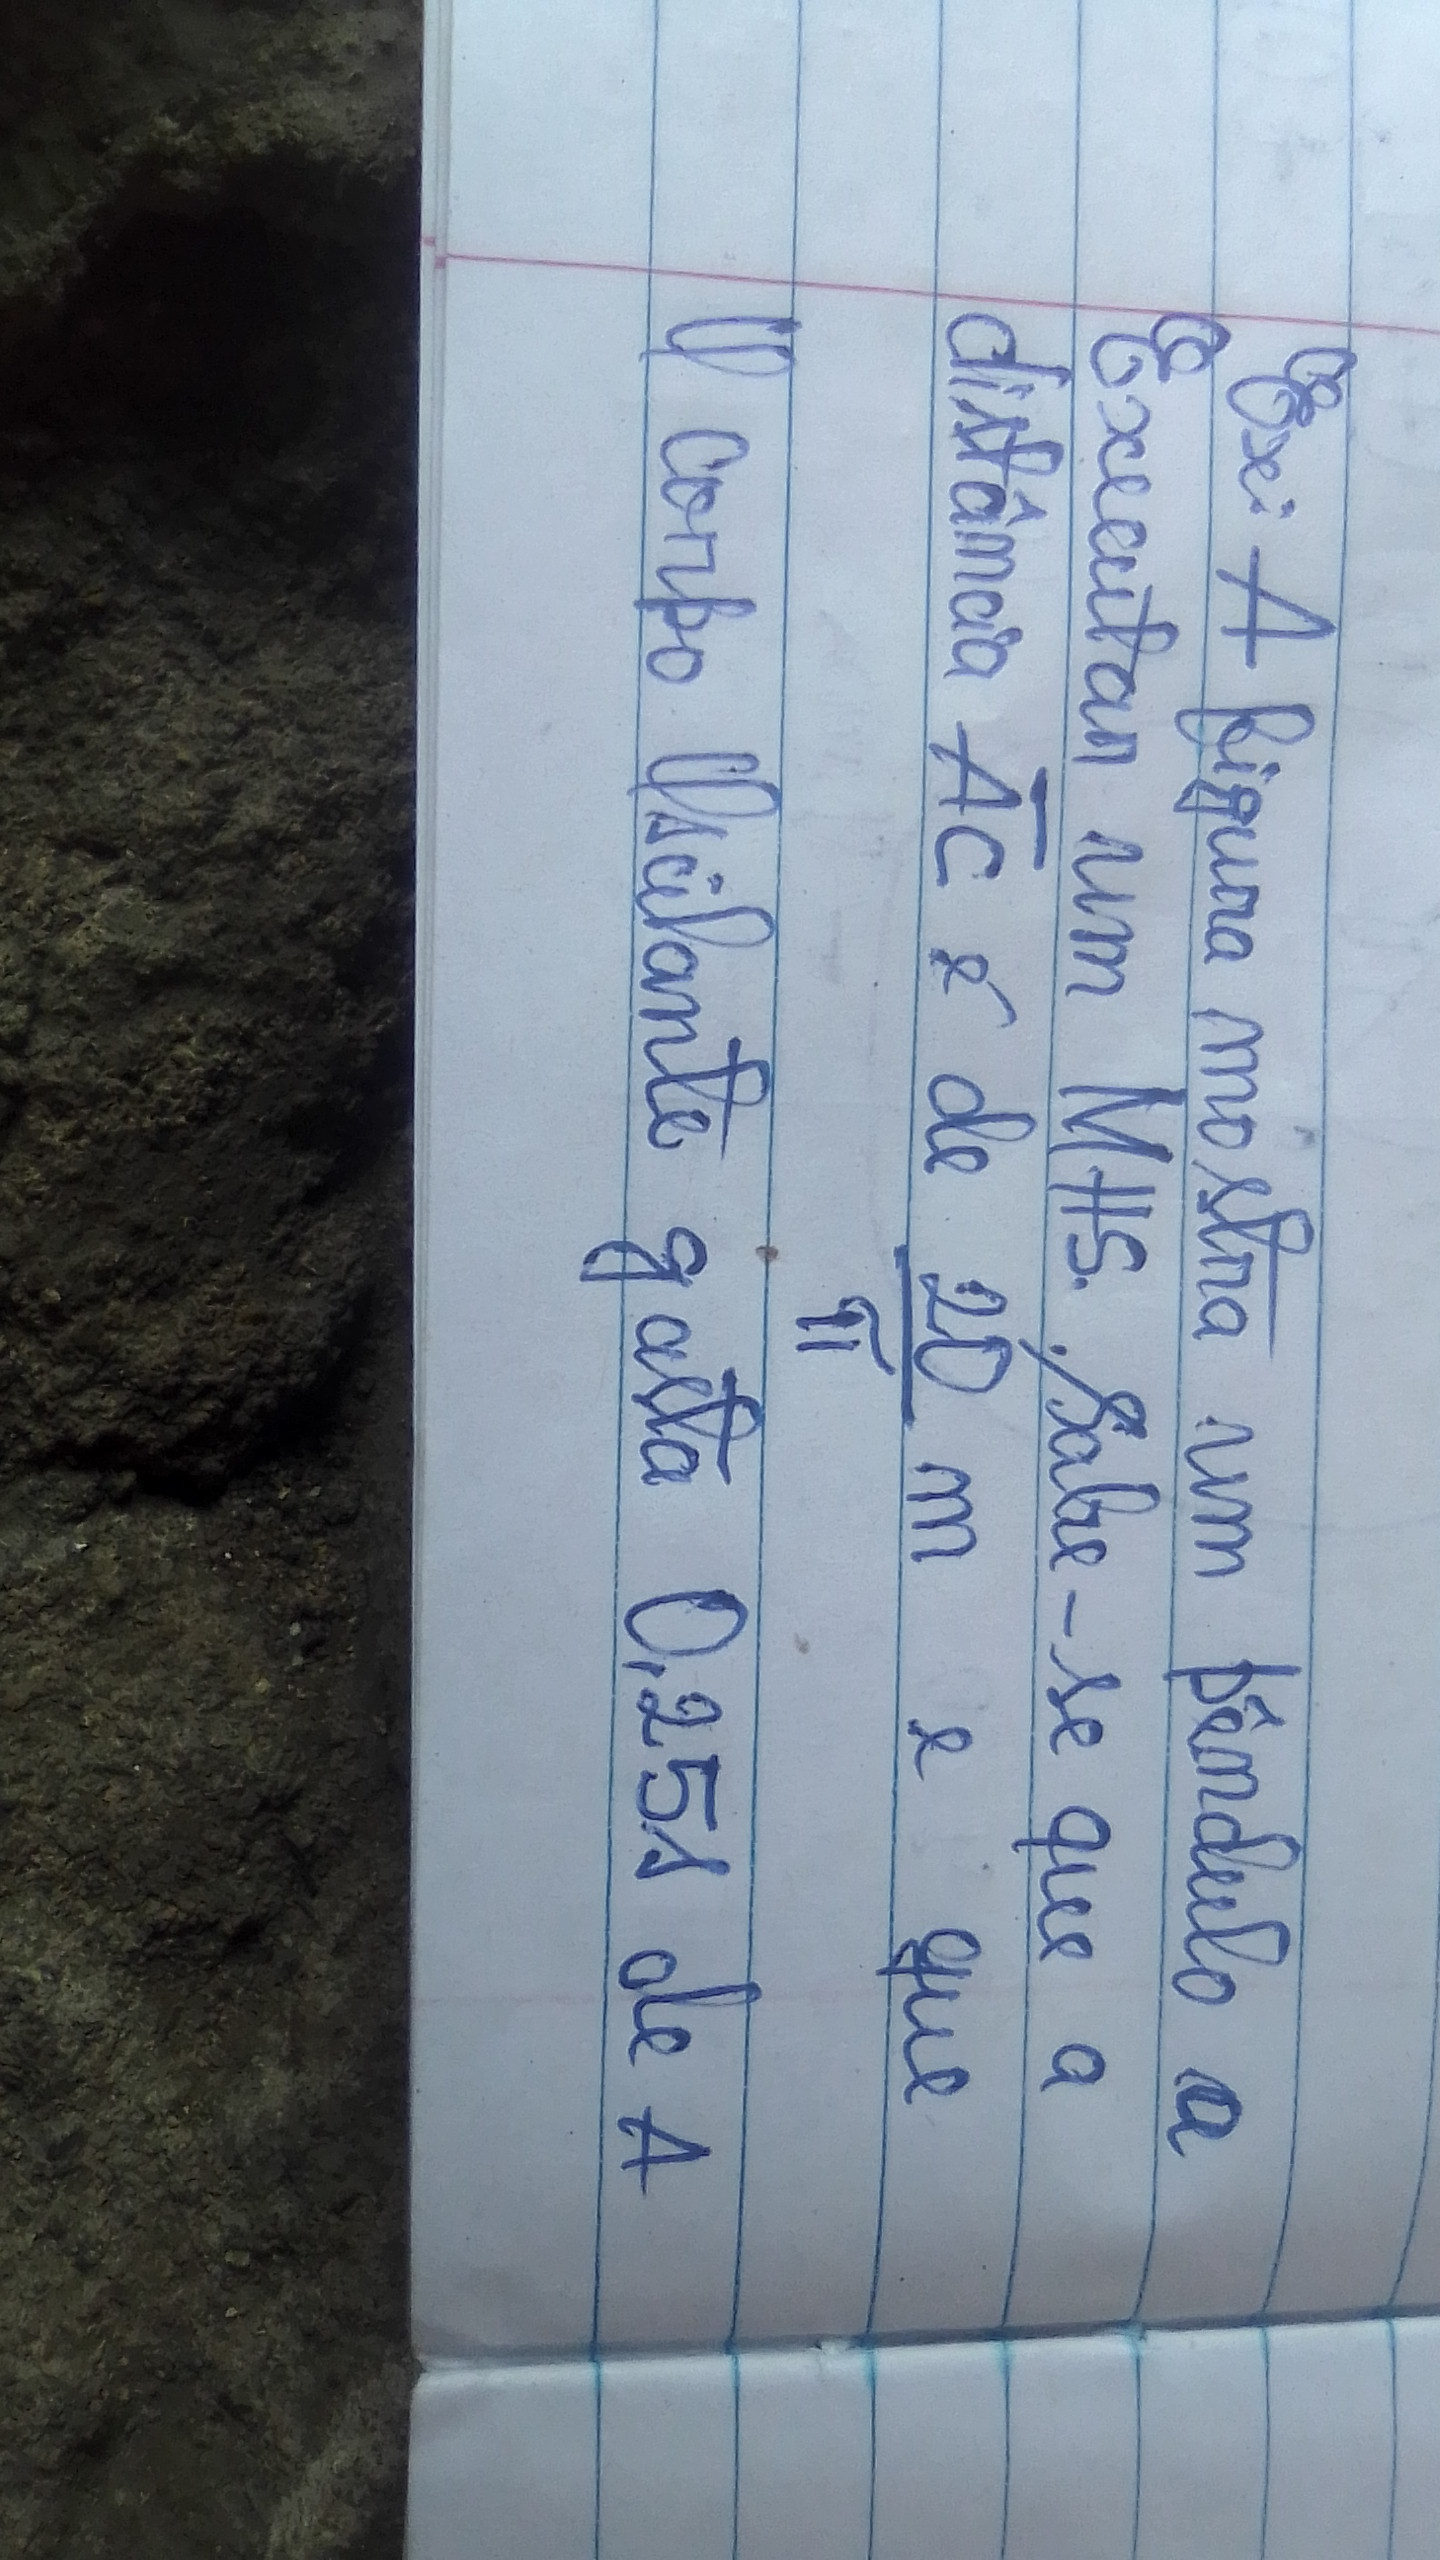 Ex: A figura mostra um pêndulo a
Executar um MHS. Sabe-se que a
distância A̅C̅ é de 20/π m e que
O corpo Oscilante gasta 0,25s de A